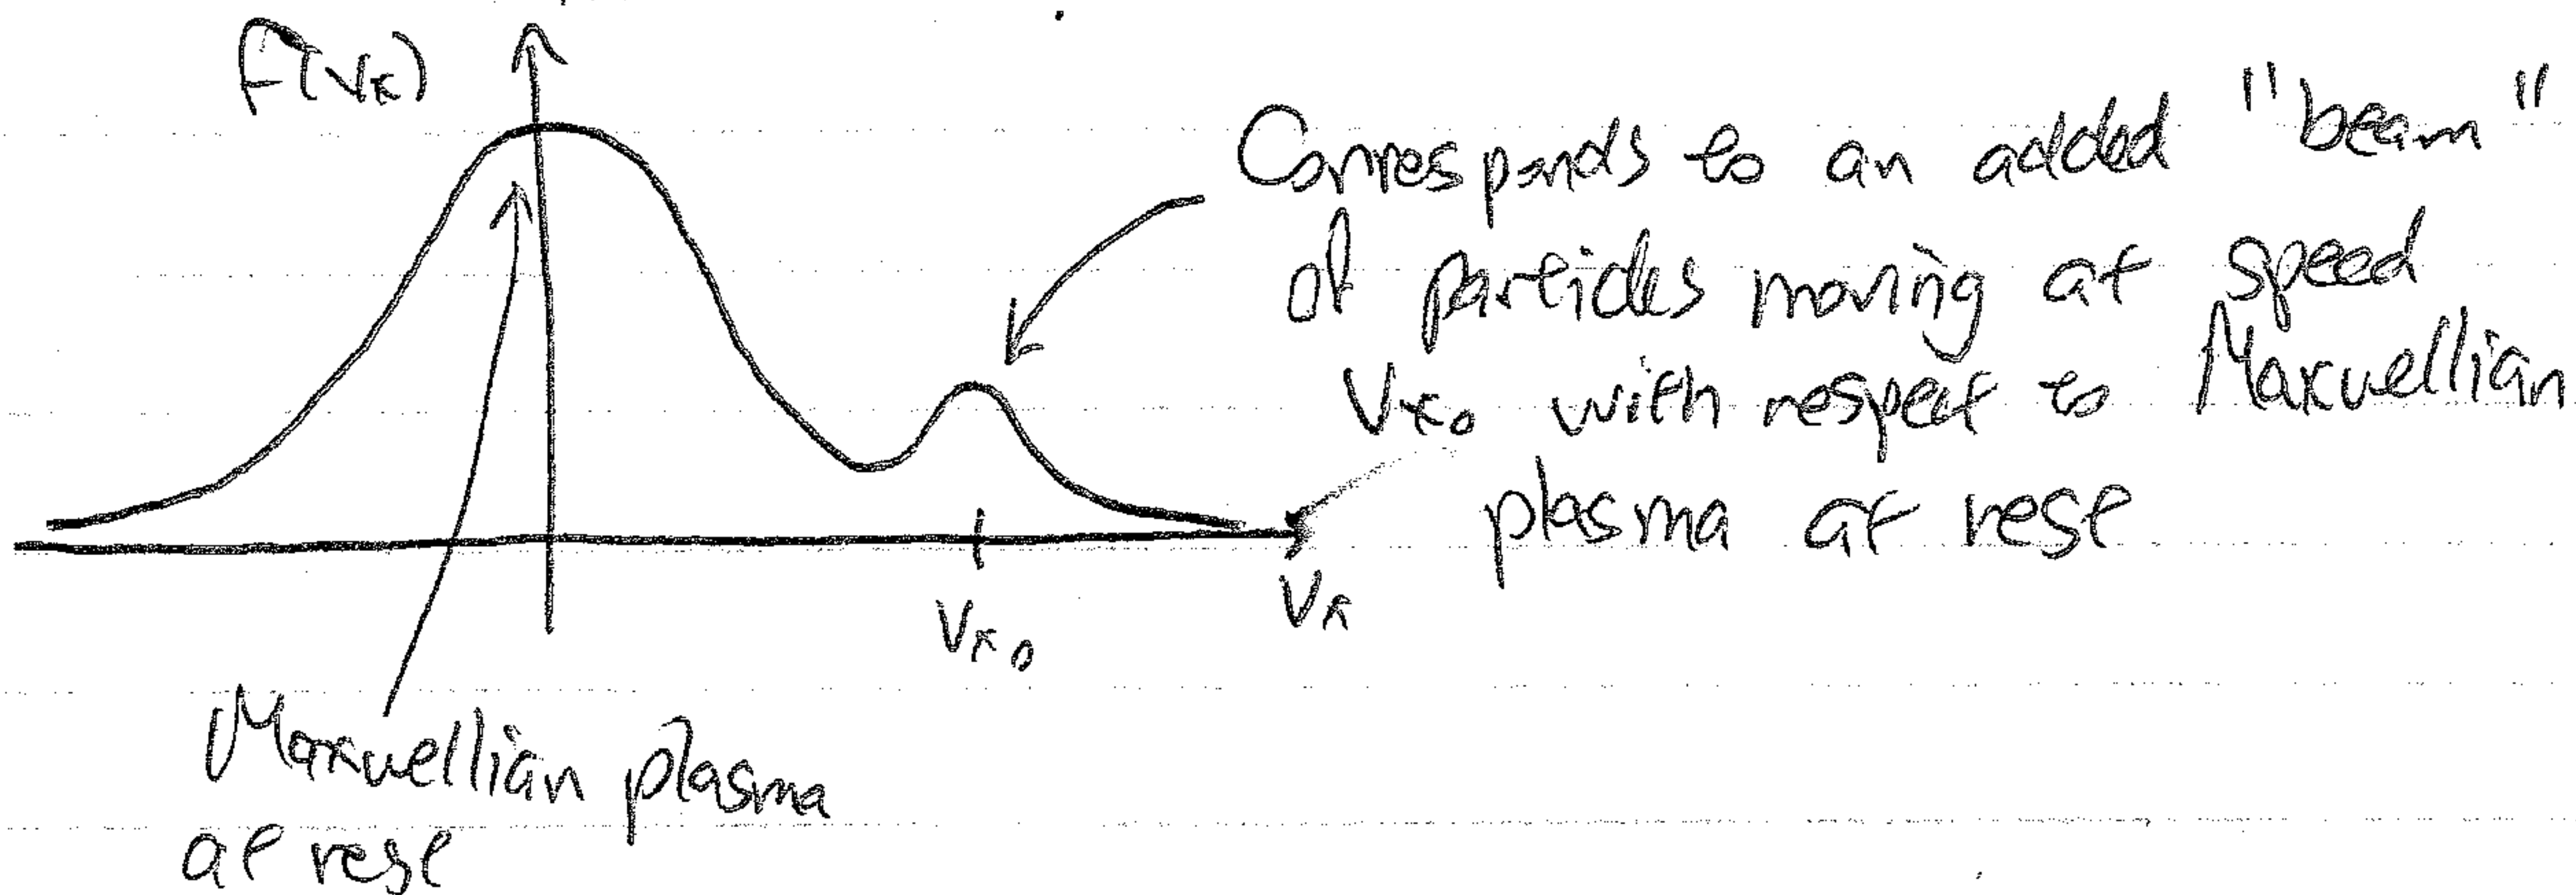 F(vx)
Corresponds to an added "beam"
of particles moving at speed
Vx0 with respect to Maxwellian
plasma at rest
Vx0
Vx
Maxwellian plasma
at rest